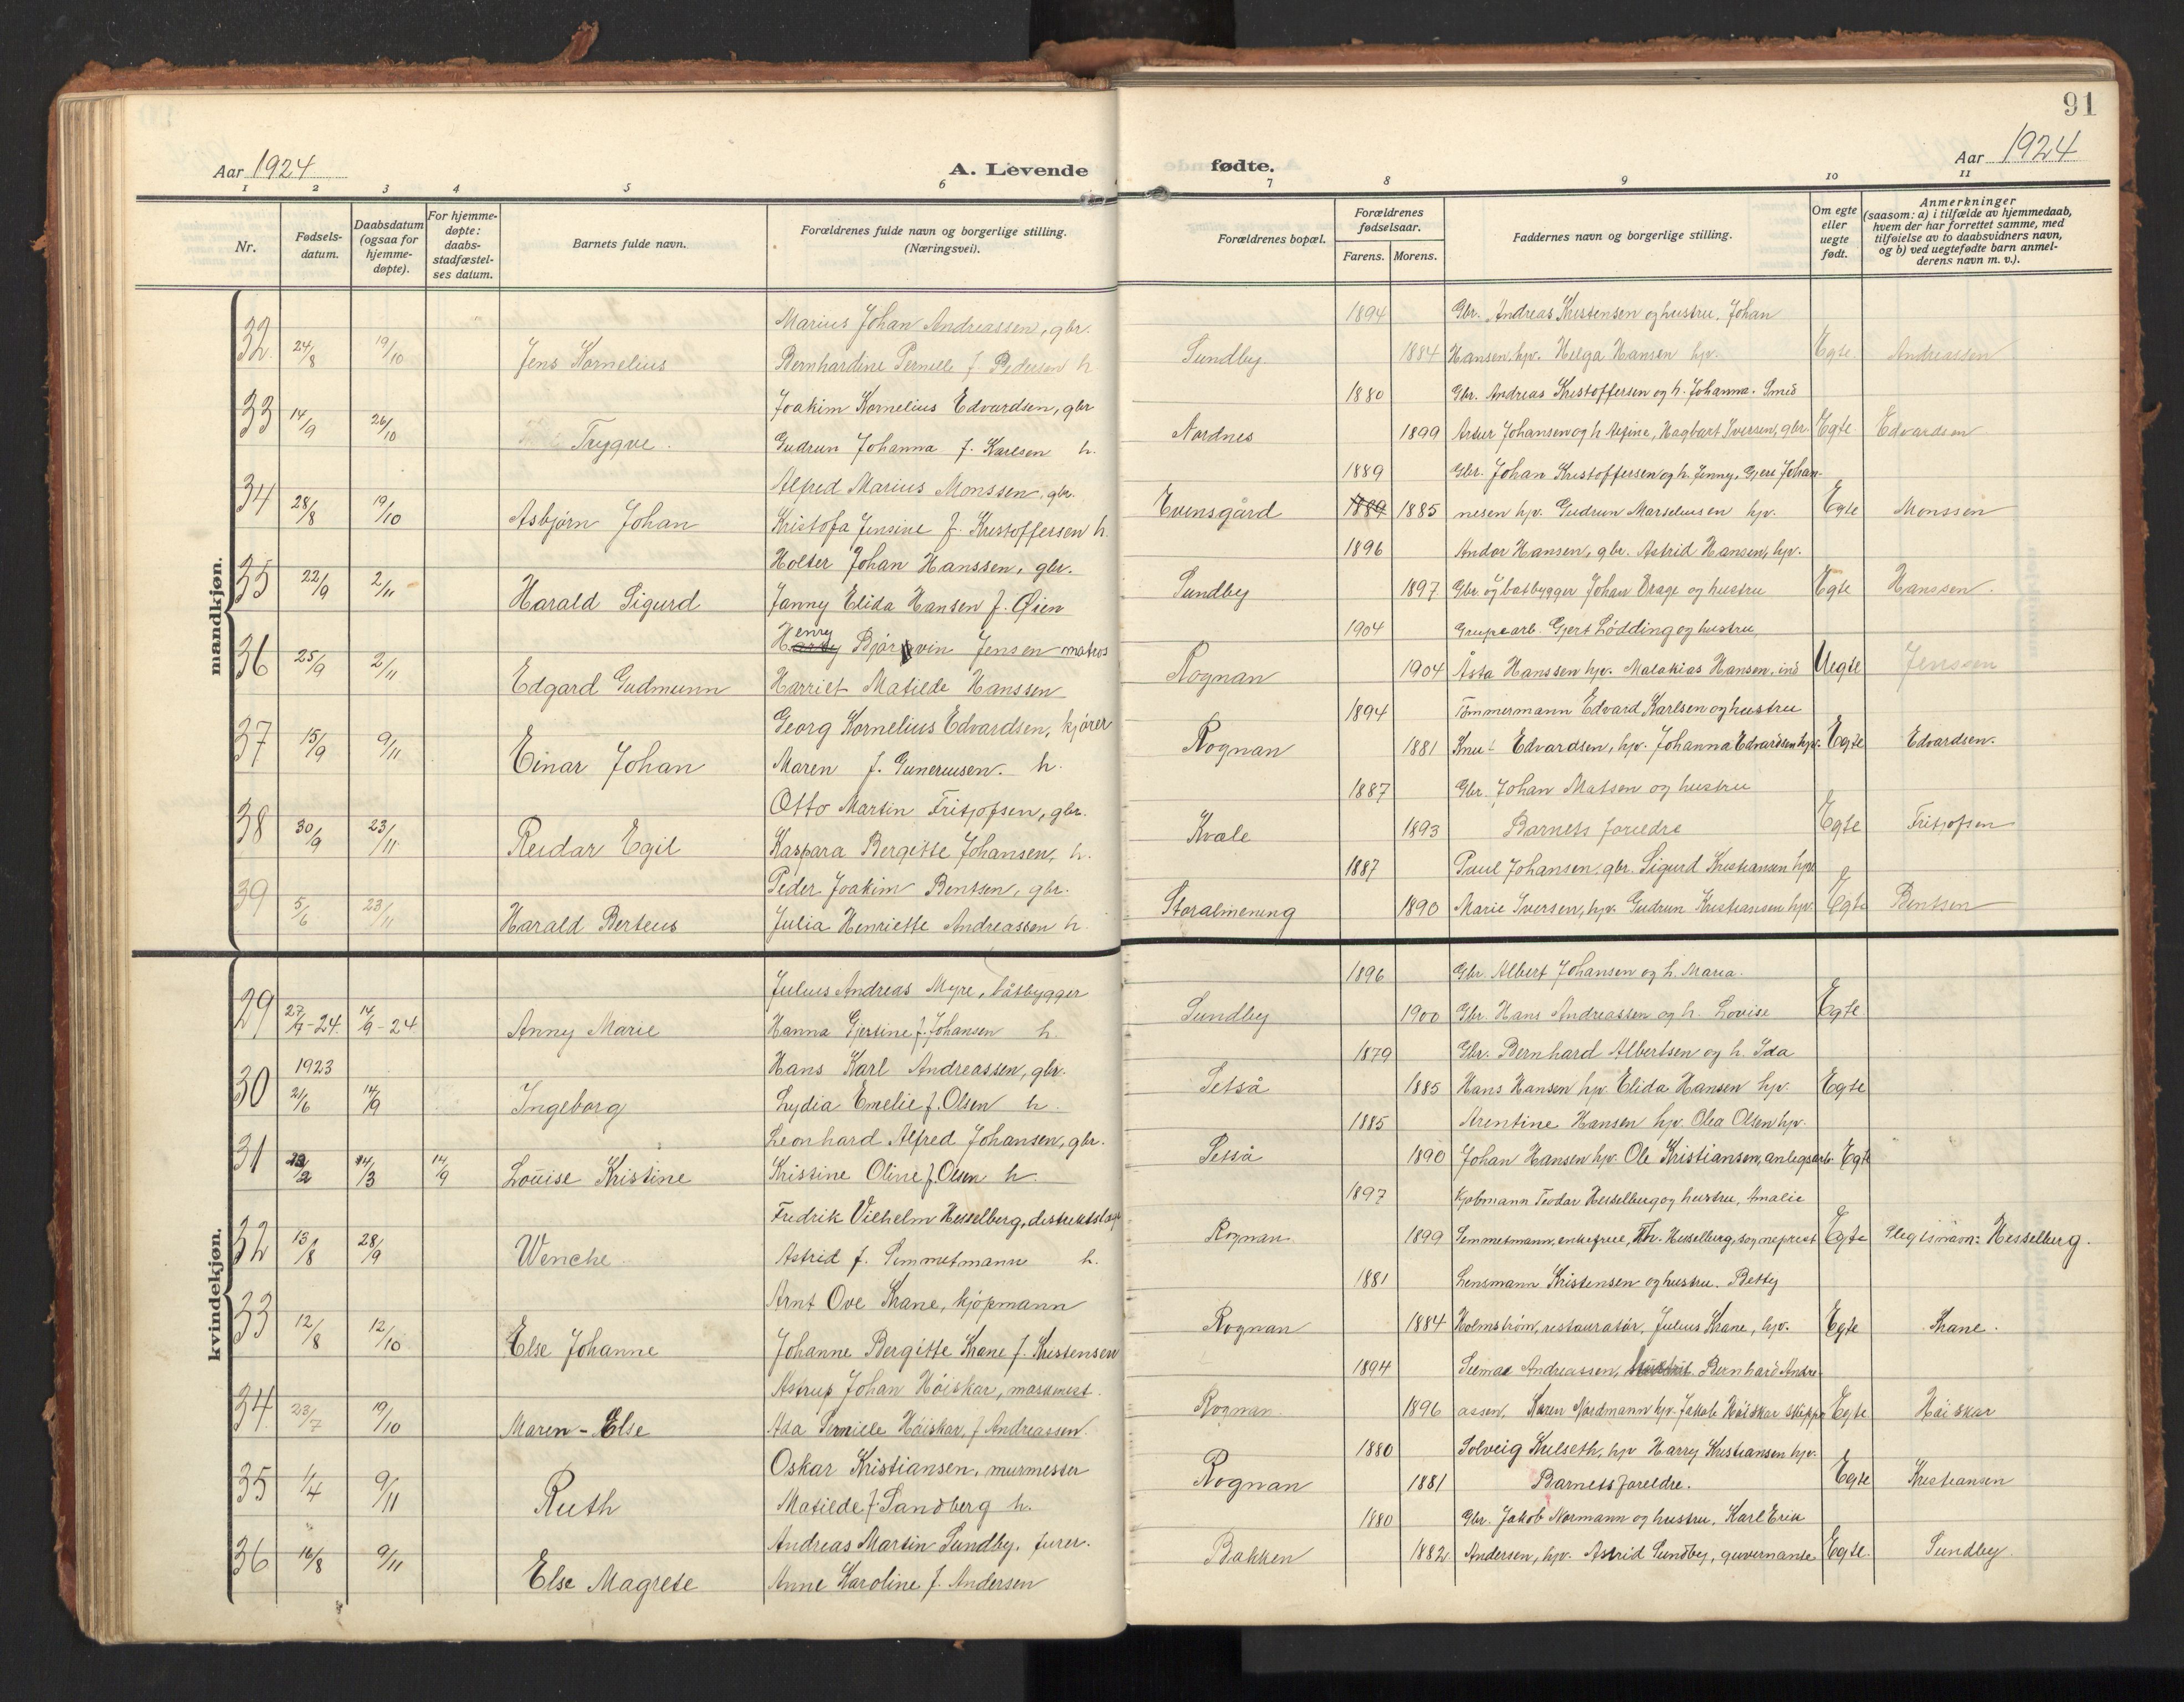 91
Aar 1924
A. Levende
fødte.
Aar 1924
1 2 3 4 5 6 7 8 9 10 11
Nr.
Fødsels-
datum.
Daabsdatum
(ogsaa for
hjemme-
døpte).
For hjemme-
døpte:
daabs-
stadfæstel-
ses datum.
Barnets fulde navn.
Forældrenes fulde navn og borgerlige stilling.
(Næringsvei).
Forældrenes bopæl.
Forældrenes
fødselsaar.
Farens. Morens.
Faddernes navn og borgerlige stilling.
Om egte
eller
uegte
født.
Anmerkninger
(saasom: a) i tilfælde av hjemmedaab,
hvem der har forrettet samme, med
tilføielse av to daabsvidners navn,
og b) ved uegtefødte barn anmel-
derens navn m. v.).
mandkjøn.
Marius Johan Andreassen, gbr. 1894 Gbr. Andreas Kristensen og hustru, Johan
32. 24/8 19/10 Jens Kornelius Bernhardine Pernille f. Pedersen h. Sundby 1884 Hansen, hpv. Helga Hansen hpv. Egte Andreassen
Joakim Kornelius Edvardsen, gbr 1880 Gbr. Andreas Kristoffersen og h. Johanna. Smed
33 14/9 26/10 Trygve. Gudrun Johanna f. Karlsen h. Nordnes 1899 Artur Johansen og h. Alfine, Hagbart Iversen, gbr. Egte. Edvardsen
Alfred Marius Monssen, gbr. 1889 Gbr. Johan Kristoffersen og h. Jenny, Gjert Johan-
34 28/8 19/10 Asbjørn Johan Kristofa Jensine f. Kristoffersen h. Evensgård 1889 1885 nesen hpv. Gudrun Marseliusen hpv. Egte Monssen
Holter Johan Hanssen, gbr. 1896 Andor Hansen, gbr. Astrid Hansen, hpv.
35 22/9 2/11 Harald Sigurd Janny Elida Hansen f. Øien Sundby 1897 Gbr. og båtbygger Johan Drage og hustru Egte Hanssen.
Henry Bjørgvin Jensen matros 1904 Grupearb. Gjert Lødding og hustru
36 25/9 2/11 Edgard Gudmunn Harriet Matilde Hanssen Rognan 1904 Åsta Hanssen hpv. Malakias Hansen, ind Uegte Jenssen
Georg Kornelius Edvardsen, kjører 1894 Tømmermann Edvard Karlsen og hustru
37 15/9 9/11 Einar Johan Maren f. Guneriusen. h. Rognan 1881 Knut Edvardsen, hpv. Johanna Edvardsen hpv. Egte Edvardsen.
Otto Martin Fritjofsen, gbr. 1887 Gbr. Johan Matsen og hustru
38 30/9 23/11 Reidar Egil Kaspara Bergitte Johansen, h. Kvæle 1893 Barnets forældre Egte Fritjofsen
Peder Joakim Bentsen, gbr. 1887 Paul Johansen, gbr. Sigurd Kristiansen hpv
39 5/6 23/11 Harald Berteus Julia Henriette Andreassen h. Storalmening 1890 Marie Iversen, hpv. Gudrun Kristiansen hpv. Egte Bentsen
kvindekjøn.
Julius Andreas Myre, båtbygger 1896 Gbr. Albert Johansen og h. Maria.
29 27/7-24. 14/9-24 Anny Marie Hanna Gjertine f. Johansen h. Sundby 1900 Gbr. Hans Andreassen og h. Lovise Egte.
1923 Hans Karl Andreassen, gbr. 1879 Gbr. Bernhard Albertsen og h. Ida
30 21/6 14/9 Ingeborg Lydia Emelie f. Olsen h. Setså 1885 Hans Hansen hpv. Elida Hansen hpv. Egte
Leonhard Alfred Johansen, gbr. 1885 Arentine Hansen hpv. Olea Olsen hpv.
31 14/3 14/9 Louise Kristine Kristine Oline f. Olsen h. Setså 1890 Johan Hansen hpv. Ole Kristiansen, anlegsarb. Egte
Fredrik Vilhelm Hesselberg, distriktslæge 1897 Kjøbmann Teodor Hesselberg og hustru, Amalie
32 13/8 28/9 Wenche Astrid f. Semmetmann h. Rognan 1899 Semmetmann, enkefrue, Th. Hesselberg, sogneprest Egte Slegtsnavn: Hesselberg.
Arnt Ove Krane, kjøpmann 1881 Lensmann Kristensen og hustru. Betty
33 12/8 12/10 Else Johanne Johanne Bergitte Krane f. Kristensen Rognan 1884 Holmstrøm, restauratør, Julius Krane, hpv. Egte Krane.
Astrup Johan Høiskar, maskinist. 1894 Selmar Andreassen, Bernhard Andre-
34. 23/7 19/10 Maren-Else Ada Pernille Høiskar, f Andreassen. Rognan. 1896 assen, Karen Nordmann hpv. Jakob Høiskar skipper Egte Høiskar
Oskar Kristiansen, murmester 1880 Solveig Kulseth, hpv Harry Kristiansen hpv.
35 1/4 9/11 Ruth Matilde f. Sandberg h. Rognan 1881 Barnets foreldre. Egte Kristiansen
Andreas Martin Sundby, furer. 1880 Gbr. Jakob Normann og hustru, Karl Erik
36 16/8 9/11 Else Magrete Anne Karoline f. Andersen Bakken 1882 Andersen, hpv. Astrid Sundby, guvernante Egte. Sundby.